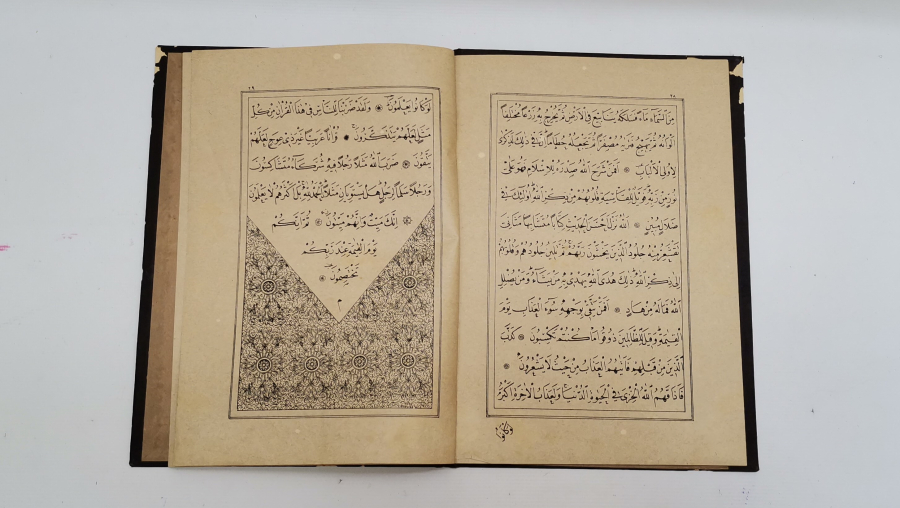 ٢٨
مِنَ السَّمَاءِ مَاءً فَسَلَكَهُ يَنَابِيعَ فِي الْأَرْضِ ثُمَّ يُخْرِجُ بِهِ زَرْعًا مُخْتَلِفًا
أَلْوَانُهُ ثُمَّ يَهِيجُ فَتَرَاهُ مُصْفَرًّا ثُمَّ يَجْعَلُهُ حُطَامًا إِنَّ فِي ذَلِكَ لَذِكْرَى
لِأُولِي الْأَلْبَابِ أَفَمَنْ شَرَحَ اللَّهُ صَدْرَهُ لِلْإِسْلَامِ فَهُوَ عَلَى
نُورٍ مِنْ رَبِّهِ فَوَيْلٌ لِلْقَاسِيَةِ قُلُوبُهُمْ مِنْ ذِكْرِ اللَّهِ أُولَئِكَ فِي
ضَلَالٍ مُبِينٍ اللَّهُ نَزَّلَ أَحْسَنَ الْحَدِيثِ كِتَابًا مُتَشَابِهًا مَثَانِيَ
تَقْشَعِرُّ مِنْهُ جُلُودُ الَّذِينَ يَخْشَوْنَ رَبَّهُمْ ثُمَّ تَلِينُ جُلُودُهُمْ وَقُلُوبُهُمْ
إِلَى ذِكْرِ اللَّهِ ذَلِكَ هُدَى اللَّهِ يَهْدِي بِهِ مَنْ يَشَاءُ وَمَنْ يُضْلِلِ
اللَّهُ فَمَا لَهُ مِنْ هَادٍ أَفَمَنْ يَتَّقِي بِوَجْهِهِ سُوءَ الْعَذَابِ يَوْمَ
الْقِيمَةِ وَقِيلَ لِلظَّالِمِينَ ذُوقُوا مَا كُنْتُمْ تَكْسِبُونَ كَذَّبَ
الَّذِينَ مِنْ قَبْلِهِمْ فَأَتٰيهُمُ الْعَذَابُ مِنْ حَيْثُ لَا يَشْعُرُونَ
فَأَذَاقَهُمُ اللَّهُ الْخِزْيَ فِي الْحَيٰوةِ الدُّنْيَا وَلَعَذَابُ الْآخِرَةِ أَكْبَرُ
لَوْ كَانُوا
٢٩
لَوْ كَانُوا يَعْلَمُونَ وَلَقَدْ ضَرَبْنَا لِلنَّاسِ فِي هَذَا الْقُرْآنِ مِنْ كُلِّ
مَثَلٍ لَعَلَّهُمْ يَتَذَكَّرُونَ قُرْآنًا عَرَبِيًّا غَيْرَ ذِي عِوَجٍ لَعَلَّهُمْ
يَتَّقُونَ ضَرَبَ اللَّهُ مَثَلًا رَجُلًا فِيهِ شُرَكَاءُ مُتَشَاكِسُونَ
وَرَجُلًا سَلَمًا لِرَجُلٍ هَلْ يَسْتَوِيَانِ مَثَلًا الْحَمْدُ لِلَّهِ بَلْ أَكْثَرُهُمْ لَا يَعْلَمُونَ
إِنَّكَ مَيِّتٌ وَإِنَّهُمْ مَيِّتُونَ ثُمَّ إِنَّكُمْ
يَوْمَ الْقِيٰمَةِ عِنْدَ رَبِّكُمْ
تَخْتَصِمُونَ
م